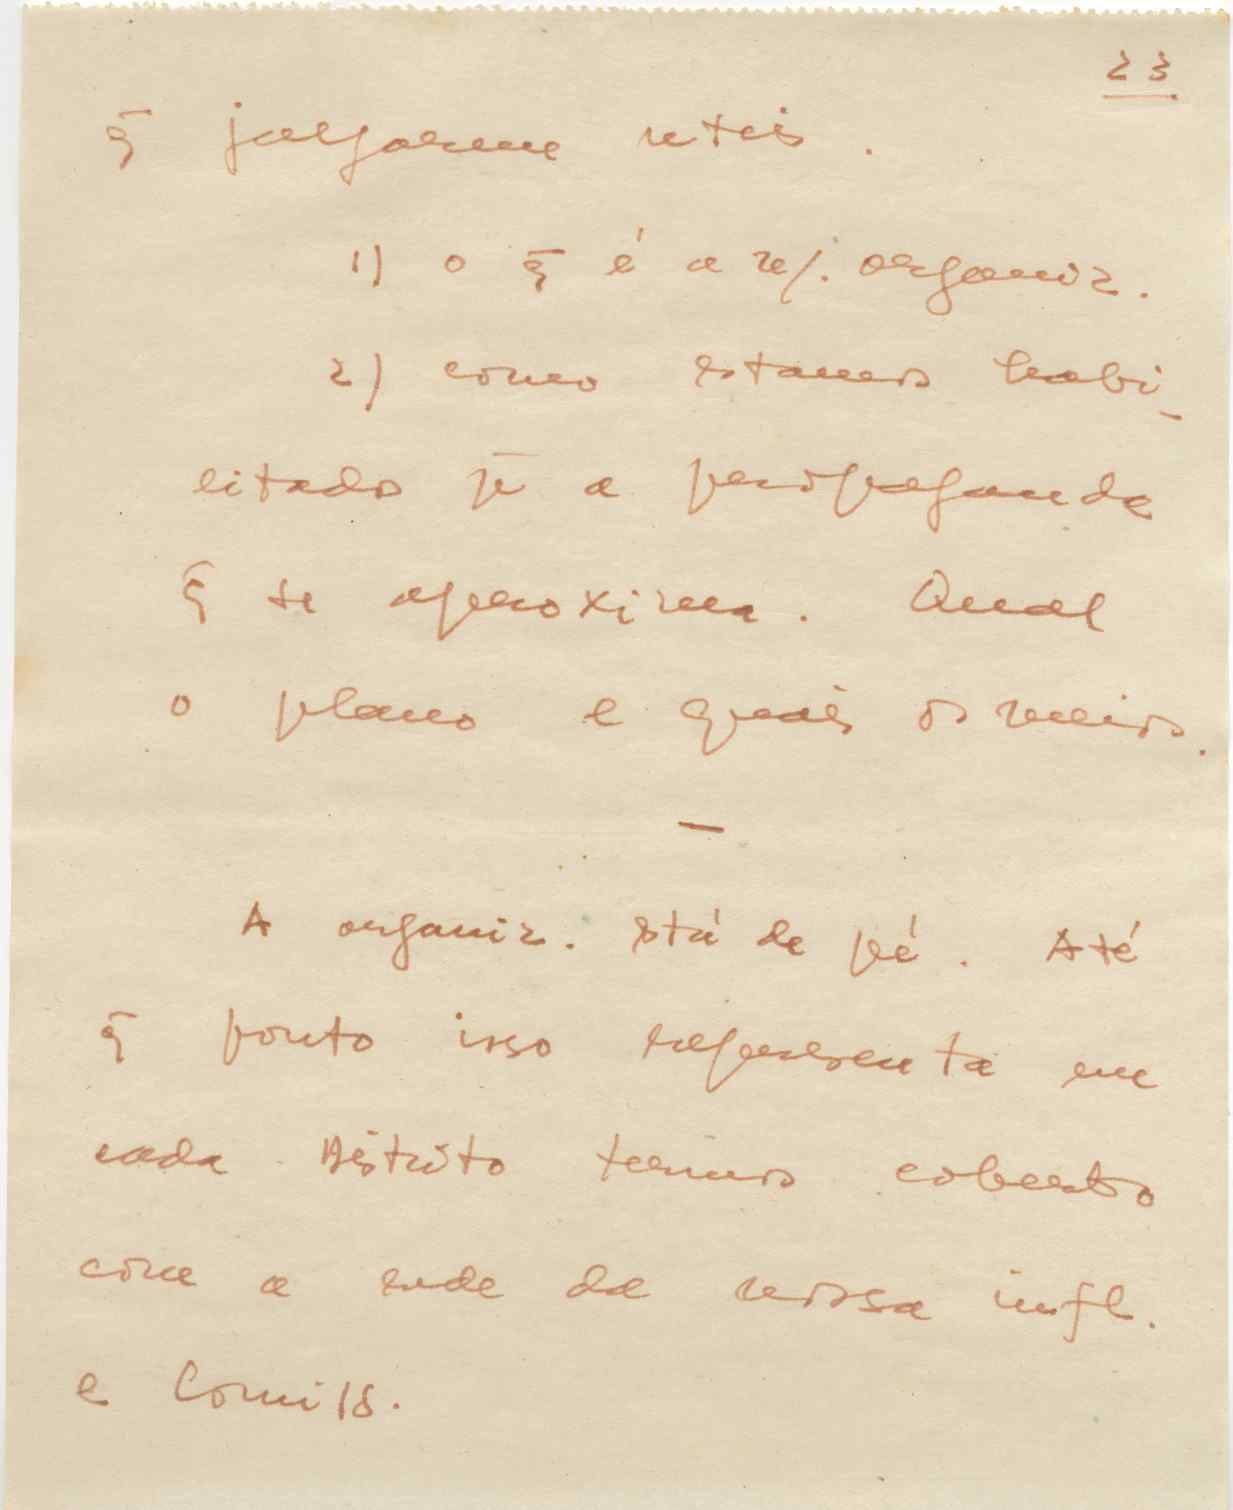 23
q̄ julgarem uteis.
1) o q̄ é a n/. organiz.
2) como estamos habi-
litados p̄ a propaganda
q̄ se aproxima. Qual
o plano e quais os meios.
—
A organiz. está de pé. Até
q̄ ponto isso representa em
cada Distrito termos cobertos
com a rede da nossa infl.
e Comiss.